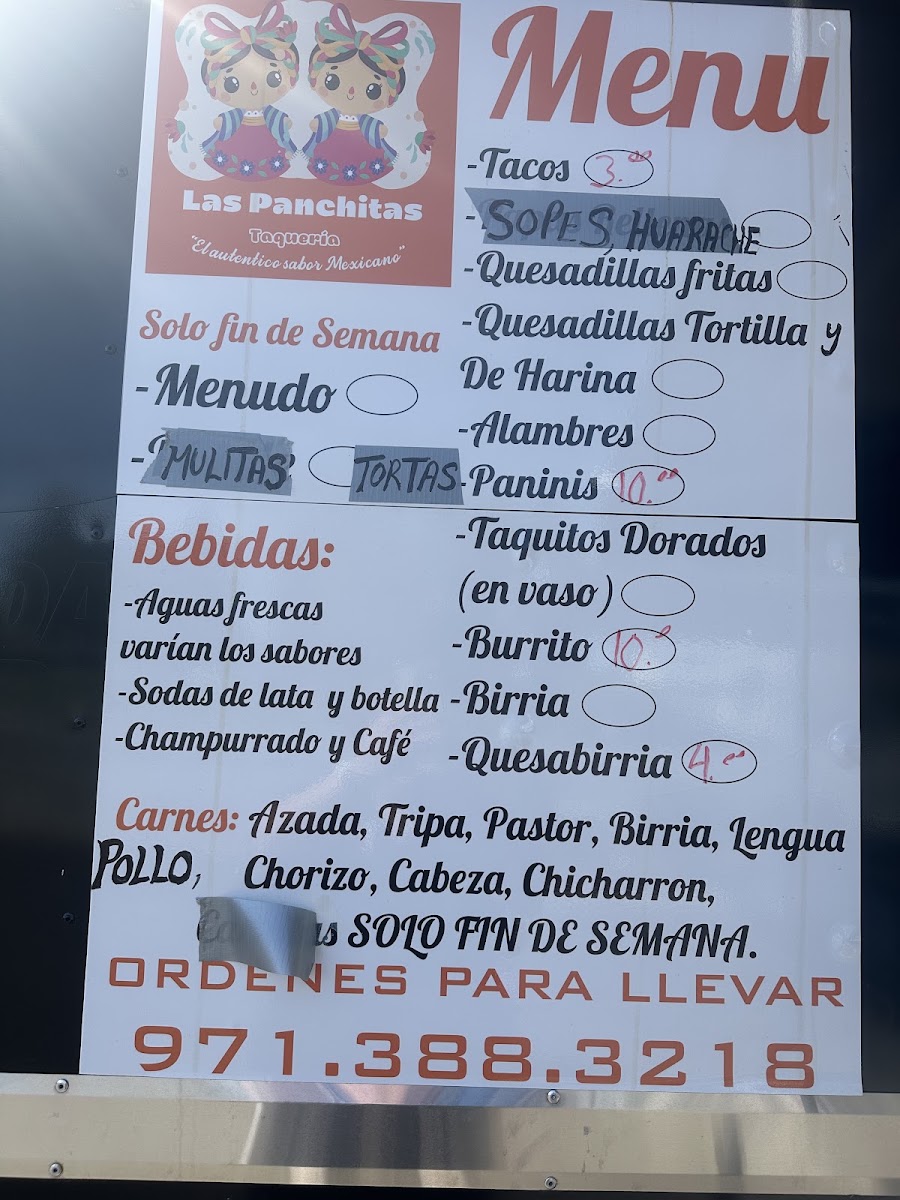 Las Panchitas
Taquería
"El autentico sabor Mexicano"
Menu
-Tacos 3.00
- SOPES, HUARACHE
-Quesadillas fritas
-Quesadillas Tortilla y
De Harina
-Alambres
-Paninis 10.00
-Taquitos Dorados
(en vaso)
-Burrito 10.0
-Birria
-Quesabirria 4.00
Solo fin de Semana
-Menudo
- MULITAS TORTAS
Bebidas:
-Aguas frescas
varían los sabores
-Sodas de lata y botella
-Champurrado y Café
Carnes: Azada, Tripa, Pastor, Birria, Lengua
POLLO, Chorizo, Cabeza, Chicharron,
SOLO FIN DE SEMANA.
ORDENES PARA LLEVAR
971.388.3218